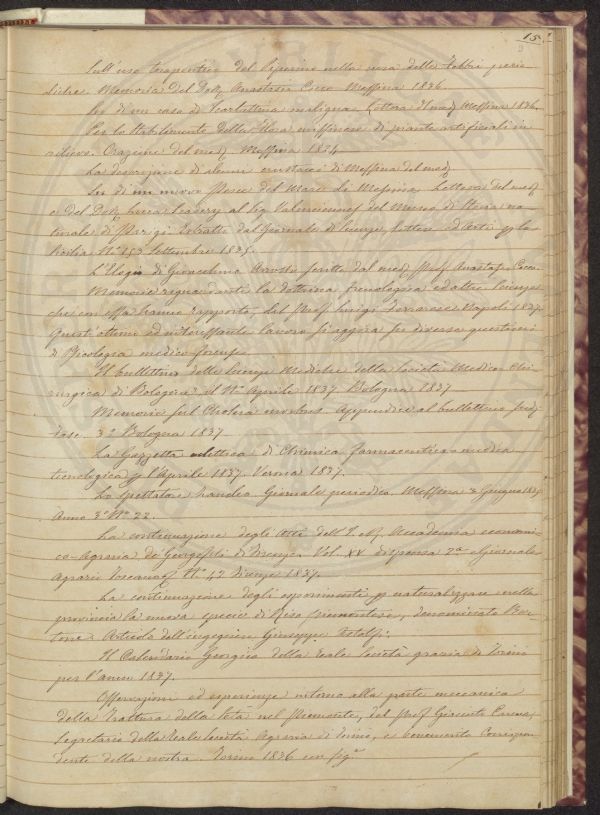 15
Sull'uso terapeutico del Piperino nella cura delle Febbri perio-
diche. Memoria del Dott. Anastasio Cocco Messina 1836.
Su di un caso di Scarlattina maligna. Lettera d'med. Messina 1836.
Per lo Stabilimento della Flora messinese di piante artificiali in
rilievo. Orazione del med. Messina 1834
La descrizione di alcuni crustacei di Messina del med.
Su di un nuovo Pesce del Mare di Messina. Lettera del med.
e del Dott. Lucca al Sig. Valenciennes del Museo di Storia na-
turale di Parigi estratta dal Giornale di Scienze, Lettere ed Arti p. la
Sicilia N.° 153 Settembre 1835.
L'Elogio di Gioacchino Arrosto scritto dal med. Prof. Anastas. Cocco.
Memorie riguardanti la dottrina frenologica ed altre scienze
che con essa hanno rapporto, del Prof. Luigi Ferrarese Napoli 1837.
Questo ottimo ed interessante lavoro si aggira su diverse questioni
di Psicologia medico-forense.
Il bullettino delle Scienze Mediche della Società Medico-Chi-
rurgica di Bologna: il N.° Aprile 1837. Bologna 1837
Memoria sul Cholera morbus. Appendice al bullettino sud.
Fasc. 3.° Bologna 1837
La Gazzetta eclettica di Chimica farmaceutica-medica-
tecnologica p. l'Aprile 1837. Verona 1837.
Lo Spettatore Zancleo. Giornale periodico. Messina 3 Giugno 1835
Anno 3.° N.° 22.
La continuazione degli Atti dell'I. R. Accademia economi-
co-Agraria de' Georgofili di Firenze. Vol. XV dispensa 2.a e Giornale
Agrario Toscano N.° 42 Firenze 1837.
La continuazione degli esperimenti p. naturalizzare nella
provincia la nuova specie di Riso piemontese, denominato Ber-
tone. Articolo dell'ingegnere Giuseppe
Il Calendario Georgico della Reale Società agraria di Torino
per l'anno 1837.
Osservazioni ed esperienze intorno alla parte meccanica
della Trattura della Seta nel Piemonte, del Prof. Giacinto Carena,
Segretario della Reale Società Agraria di Torino, e benemerito Corrispon-
dente della nostra. Torino 1836 con fig.e